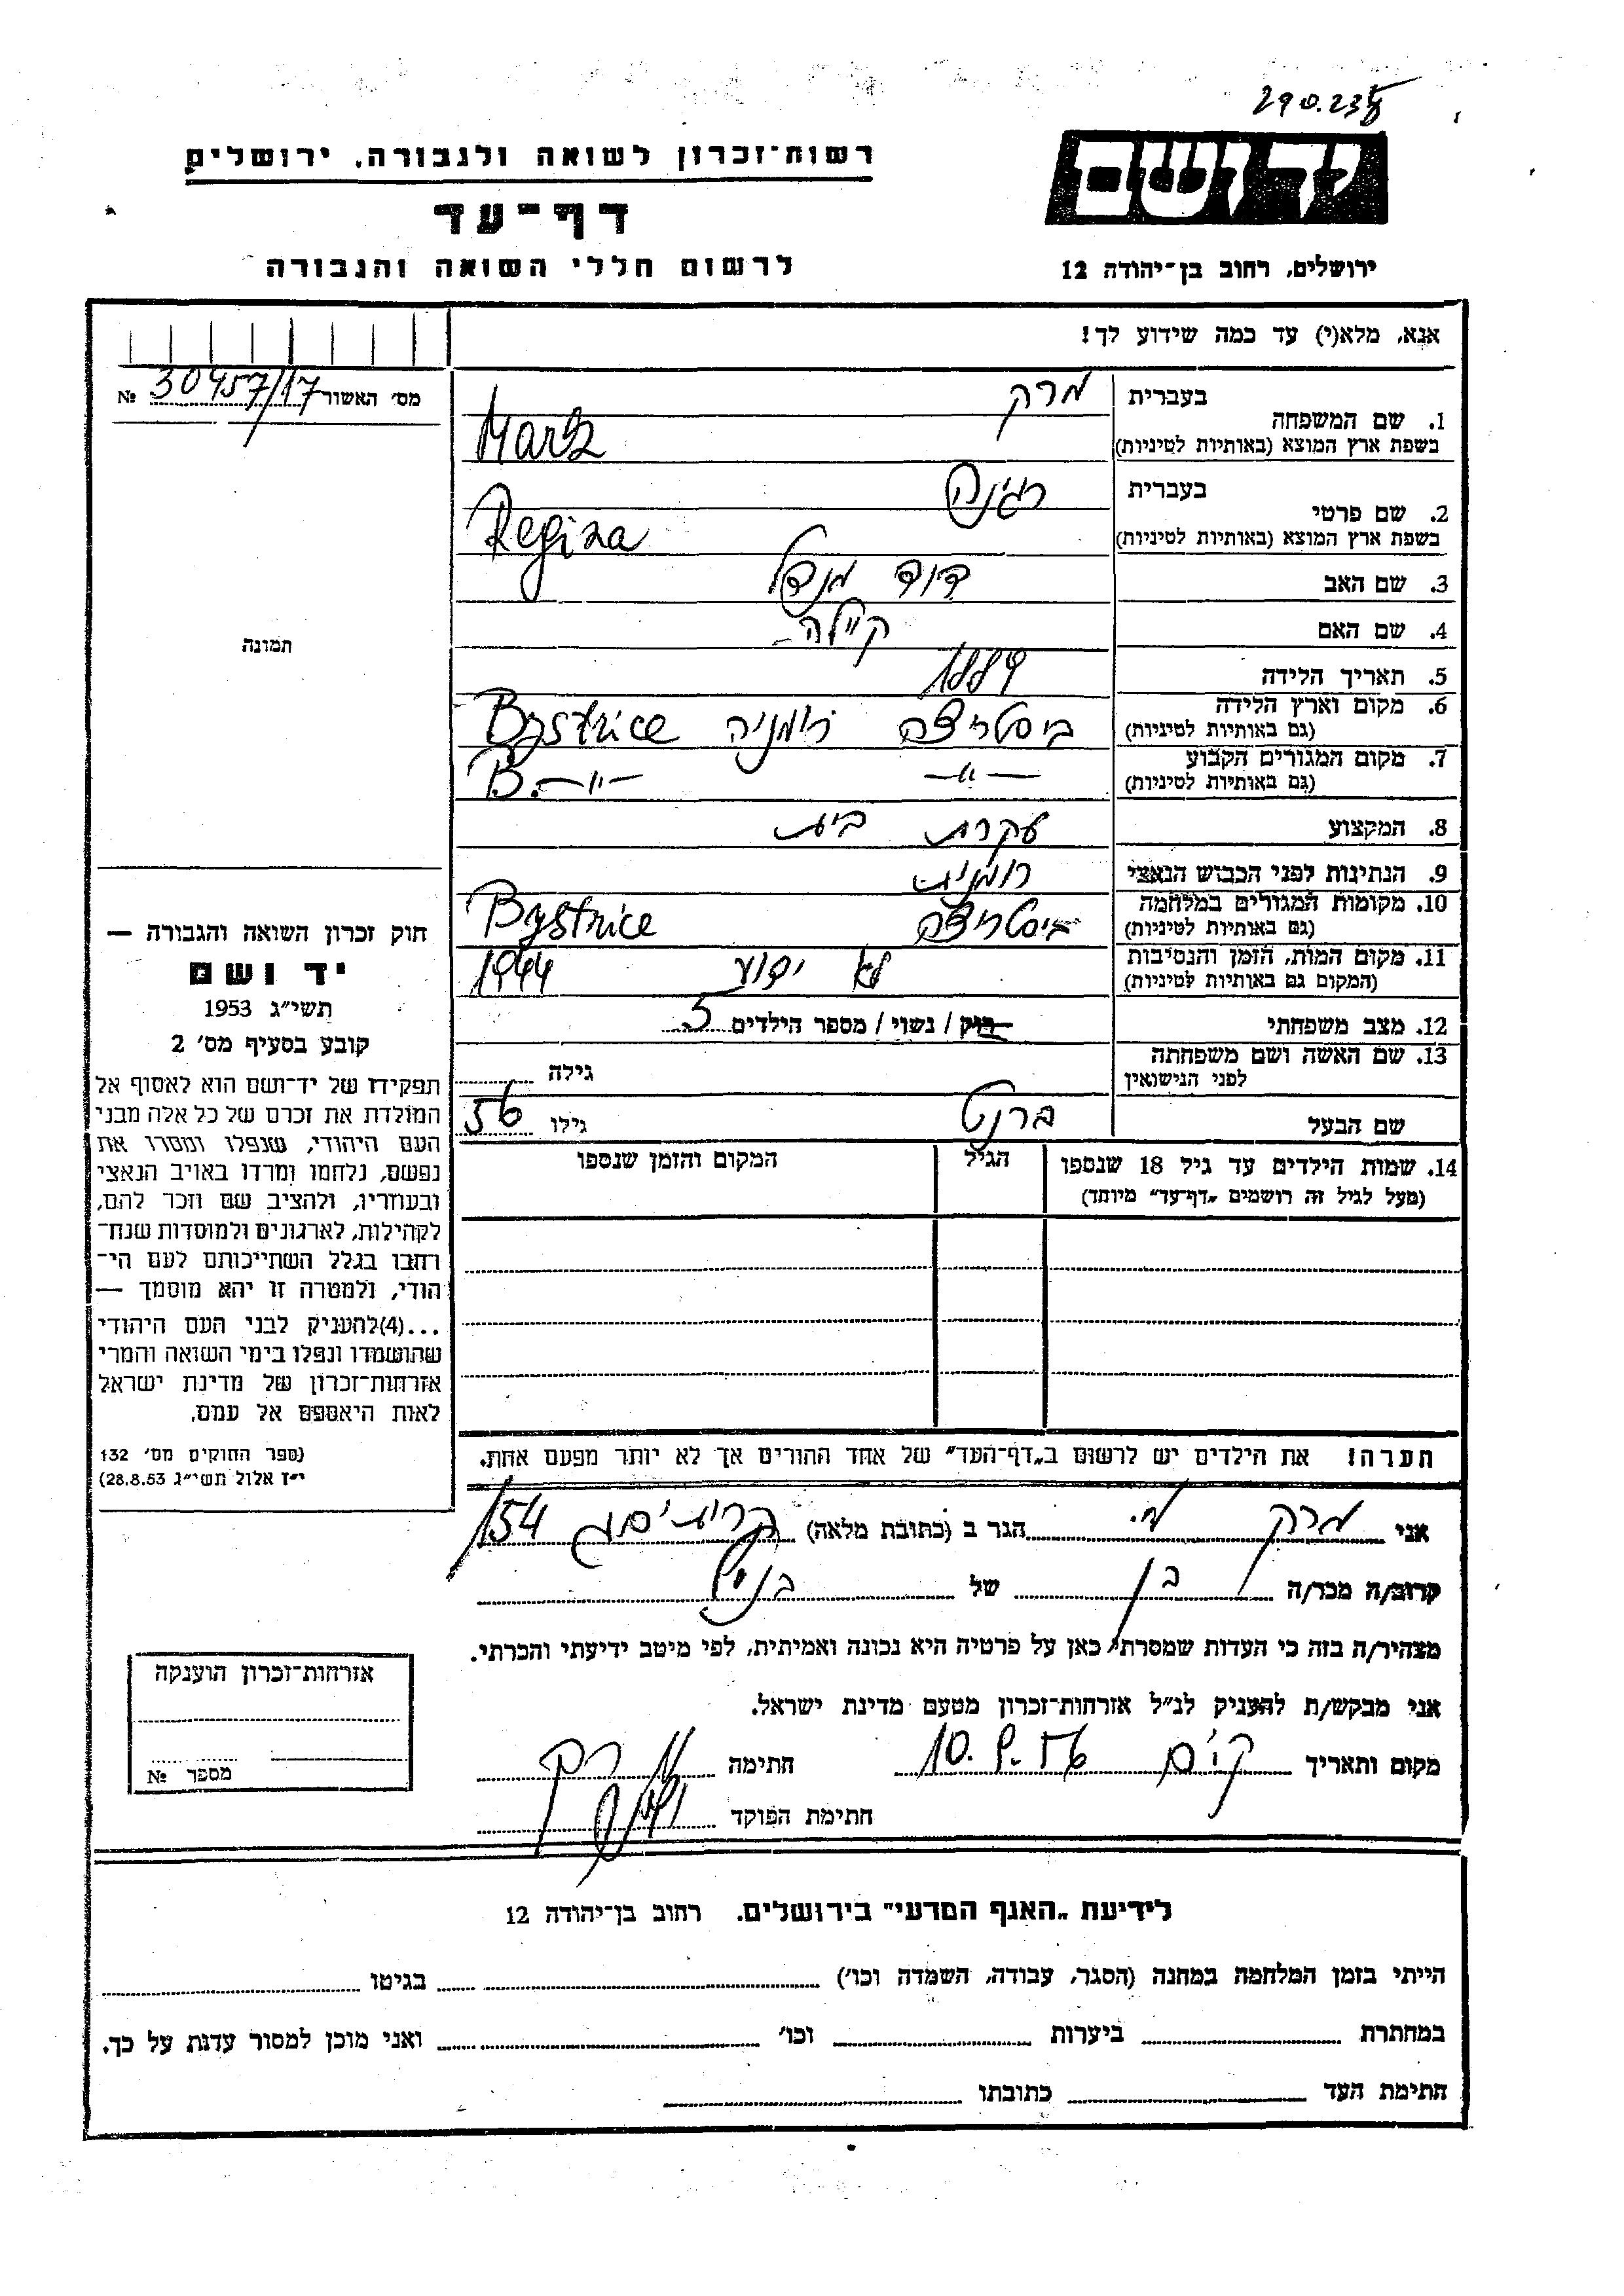 290.238
רשות־זכרון לשואה ולגבורה, ירושלים
יד ושם
דף־עד
לרשום חללי השואה והגבורה
ירושלים, רחוב בן־יהודה 12
אנא, מלא(י) עד כמה שידוע לך!
מס׳ האשור 30457/17 №
תמונה
1. שם המשפחה
בעברית מרק
בשפת ארץ המוצא (באותיות לטיניות) Mark
2. שם פרטי
בעברית רגינה
בשפת ארץ המוצא (באותיות לטיניות) Regina
3. שם האב דוד מנדל
4. שם האם קיילה
5. תאריך הלידה 1889
6. מקום וארץ הלידה ביסטריצה רומניה Bystrice
(גם באותיות לטיניות)
7. מקום המגורים הקבוע –״– B.–״–
(גם באותיות לטיניות)
8. המקצוע עקרת בית
9. הנתינות לפני הכבוש הנאצי רומנית
10. מקומות המגורים במלחמה ביסטריצה Bystrice
(גם באותיות לטיניות)
11. מקום המות, הזמן והנסיבות לא ידוע 1944
(המקום גם באותיות לטיניות)
12. מצב משפחתי רוק / נשוי / מספר הילדים 5
13. שם האשה ושם משפחתה
לפני הנישואין
גילה
שם הבעל ברנט גילו 56
14. שמות הילדים עד גיל 18 שנספו הגיל המקום והזמן שנספו
(מעל לגיל זה רושמים „דף־עד״ מיוחד)
הערה! את הילדים יש לרשום ב„דף־העד״ של אחד ההורים אך לא יותר מפעם אחת.
חוק זכרון השואה והגבורה —
יד ושם
תשי״ג 1953
קובע בסעיף מס׳ 2
תפקידו של יד־ושם הוא לאסוף אל
המולדת את זכרם של כל אלה מבני
העם היהודי, שנפלו ומסרו את
נפשם, נלחמו ומרדו באויב הנאצי
ובעוזריו, ולהציב שם וזכר להם,
לקהילות, לארגונים ולמוסדות שנח־
רבו בגלל השתייכותם לעם הי־
הודי, ולמטרה זו יהא מוסמך —
...(4)להעניק לבני העם היהודי
שהושמדו ונפלו בימי השואה והמרי
אזרחות־זכרון של מדינת ישראל
לאות היאספם אל עמם.
(ספר החוקים מס׳ 132
י״ז אלול תשי״ג 28.8.53)
אני מרק מ. הגר ב (כתובת מלאה) 154
קרוב/ה מכר/ה בן של
מצהיר/ה בזה כי העדות שמסרתי כאן על פרטיה היא נכונה ואמיתית, לפי מיטב ידיעתי והכרתי.
אני מבקש/ת להעניק לנ״ל אזרחות־זכרון מטעם מדינת ישראל.
מקום ותאריך 10.9.56 חתימה
חתימת הפוקד
אזרחות־זכרון הוענקה
מספר №
לידיעת „האגף המדעי״ בירושלים, רחוב בן־יהודה 12
הייתי בזמן המלחמה במחנה (הסגר, עבודה, השמדה וכו׳) בגיטו
במחתרת ביערות וכו׳ ואני מוכן למסור עדות על כך.
חתימת העד כתובתו